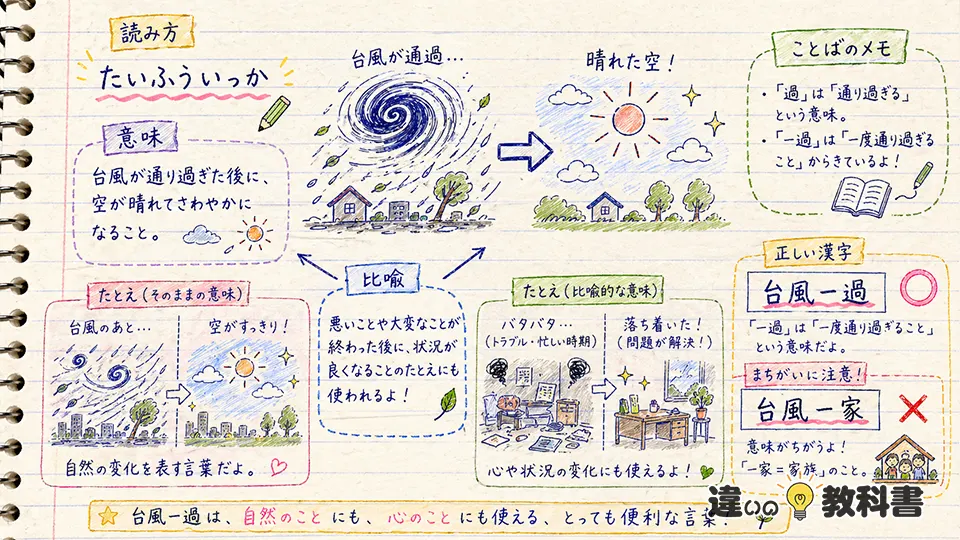 読み方
たいふういっか
意味
台風が通り過ぎた後に、
空が晴れてさわやかに
なること。
台風が通過…
晴れた空！
ことばのメモ
・「過」は「通り過ぎる」
という意味。
・「一過」は「一度通り過ぎる
こと」からきているよ！
たとえ（そのままの意味）
台風のあと…
空がすっきり！
自然の変化を表す言葉だよ。
比喩
悪いことや大変なことが
終わった後に、状況が
良くなることのたとえにも
使われるよ！
たとえ（比喩的な意味）
バタバタ…
（トラブル・忙しい時期）
落ち着いた！
（問題が解決！）
心や状況の変化にも使えるよ！
正しい漢字
台風一過
「一過」は「一度通り過ぎること」
という意味だよ。
まちがいに注意！
台風一家
意味がちがうよ！
「一家＝家族」のこと。
台風一過は、自然のことにも、心のことにも使える、とっても便利な言葉！
違いの教科書